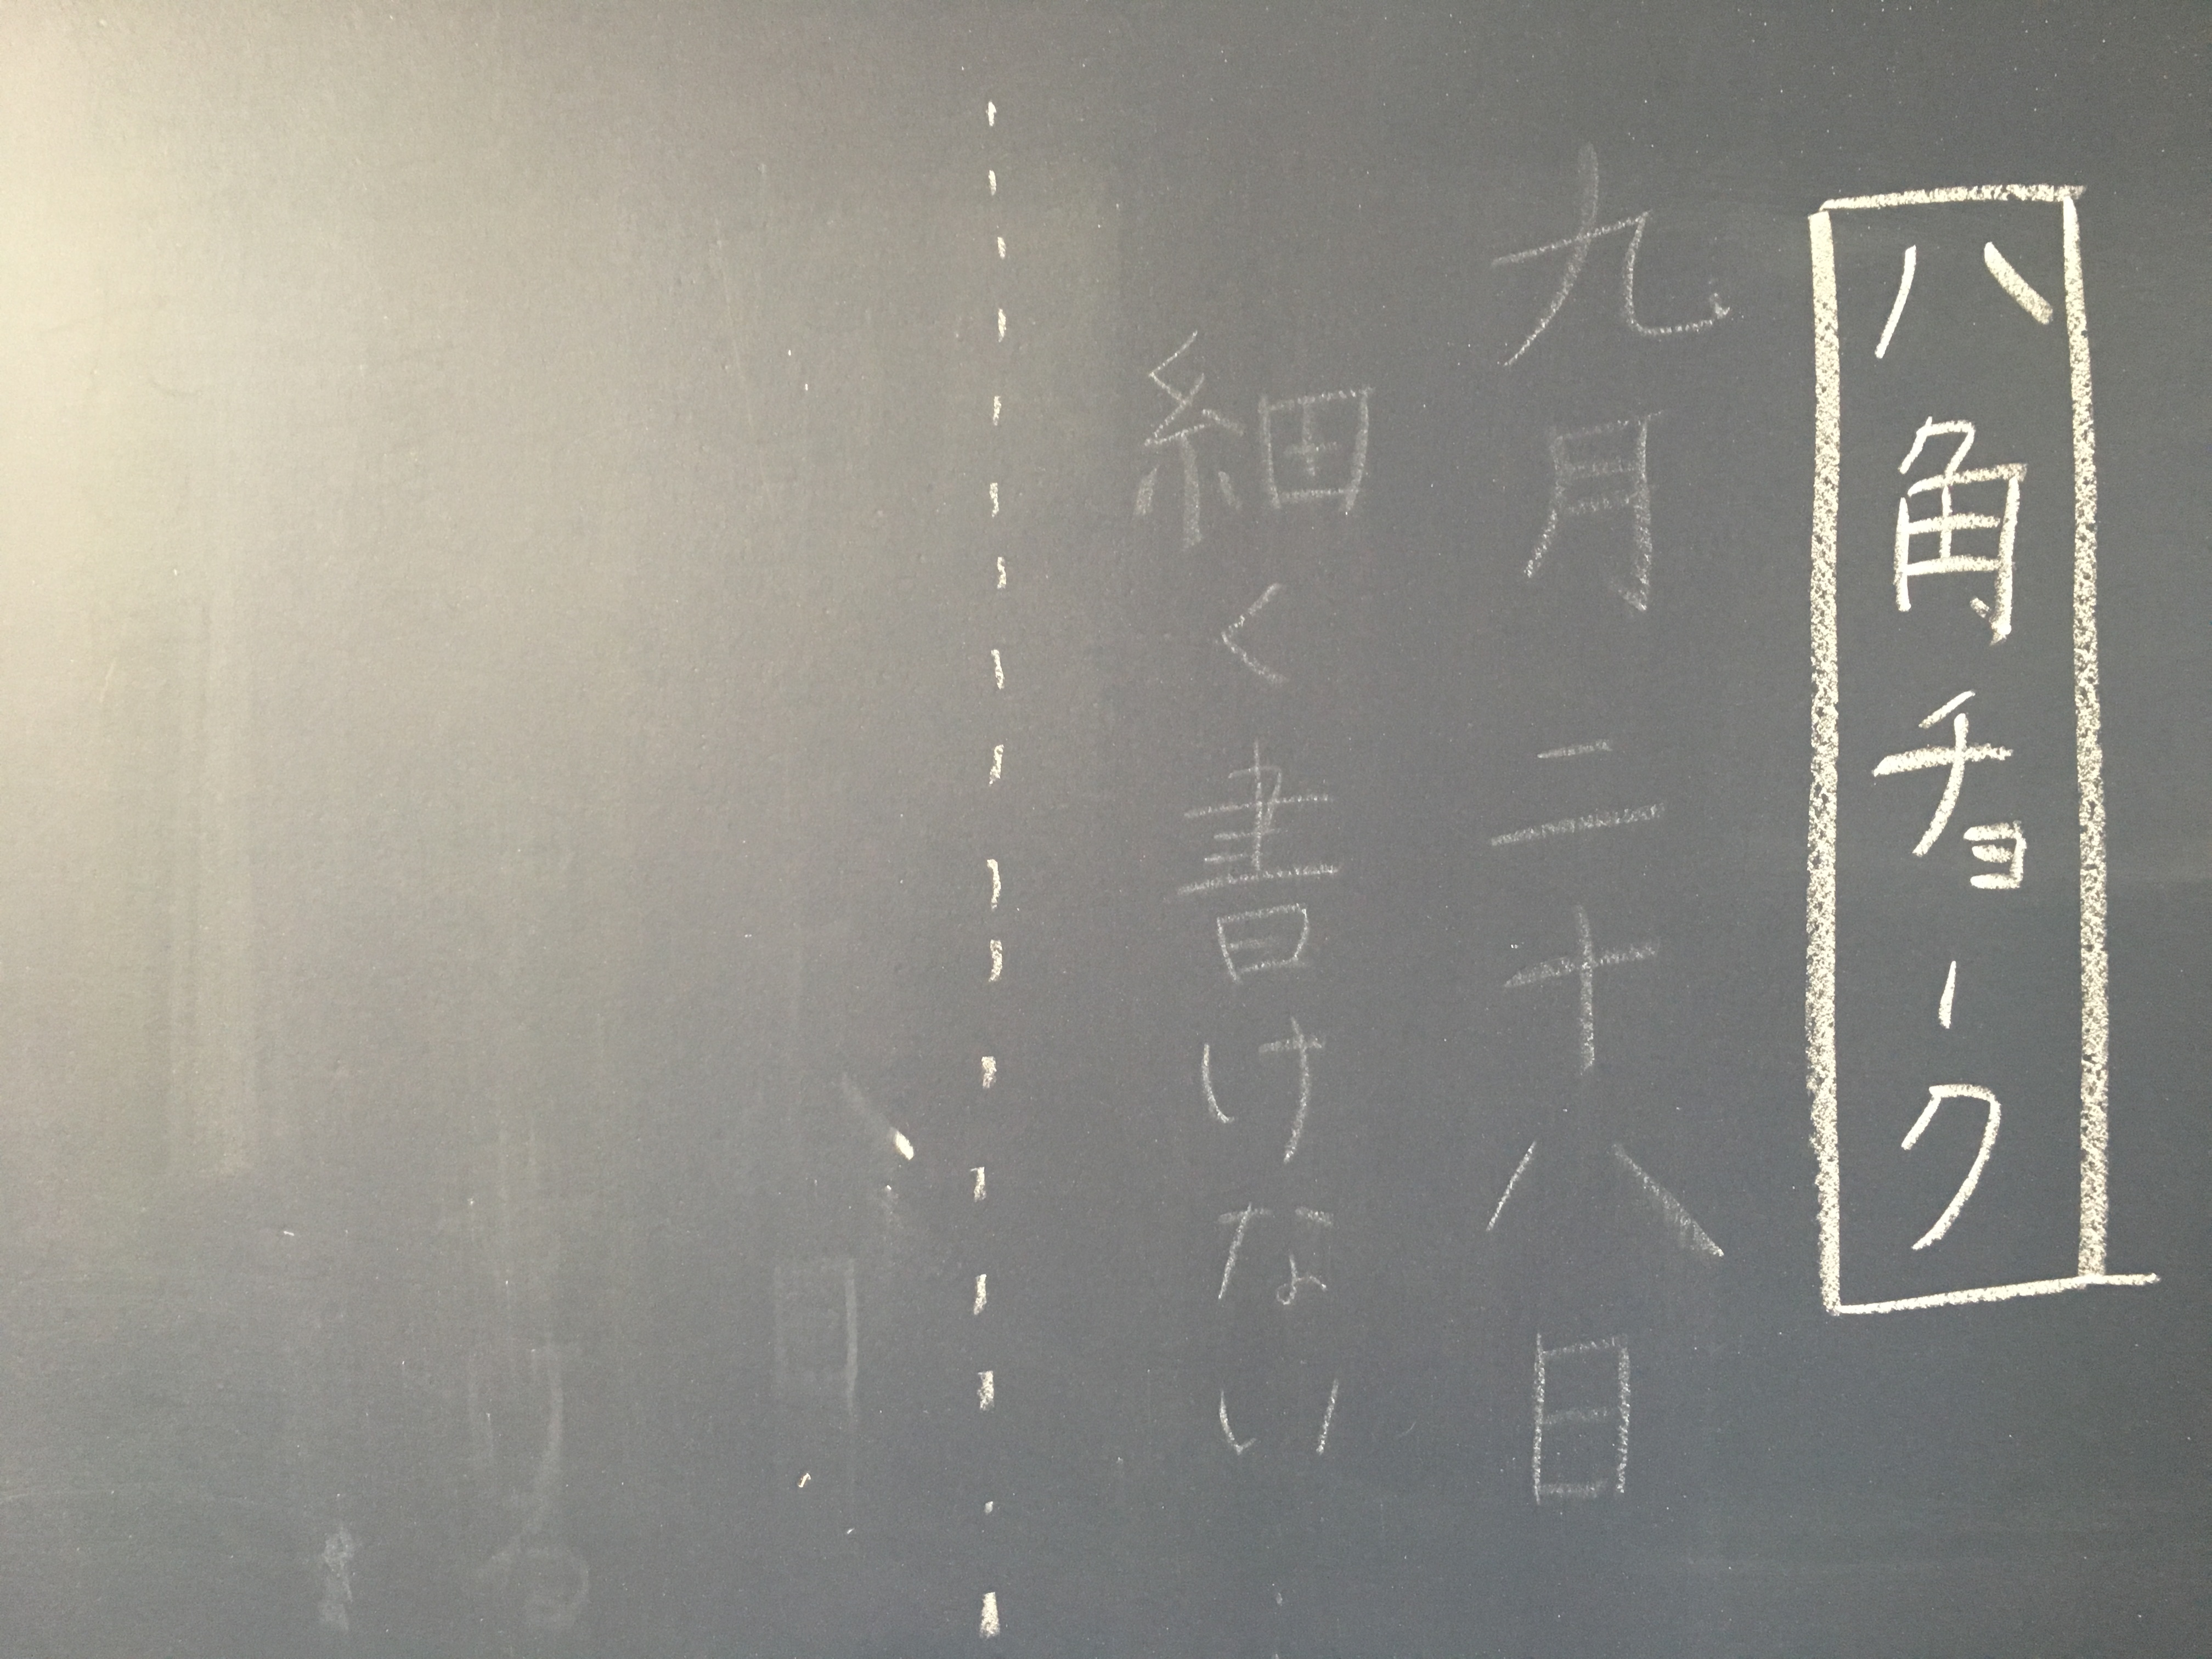 八角チョーク
九月二十八日
細く書けない